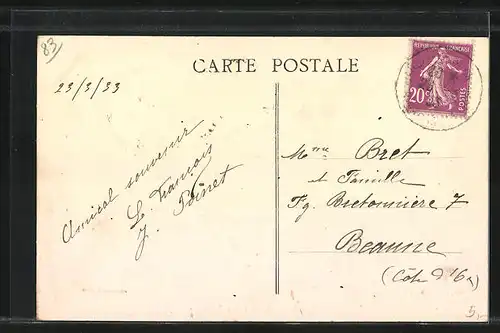 83
CARTE POSTALE
REPUBLIQUE FRANÇAISE
20c
POSTES
23/3/33
Amical souvenir
Le Français
J. Poinet
Mme Bret
et Famille
Fg. Bretonnière 7
Beaune
(Côte d'Or)
5.